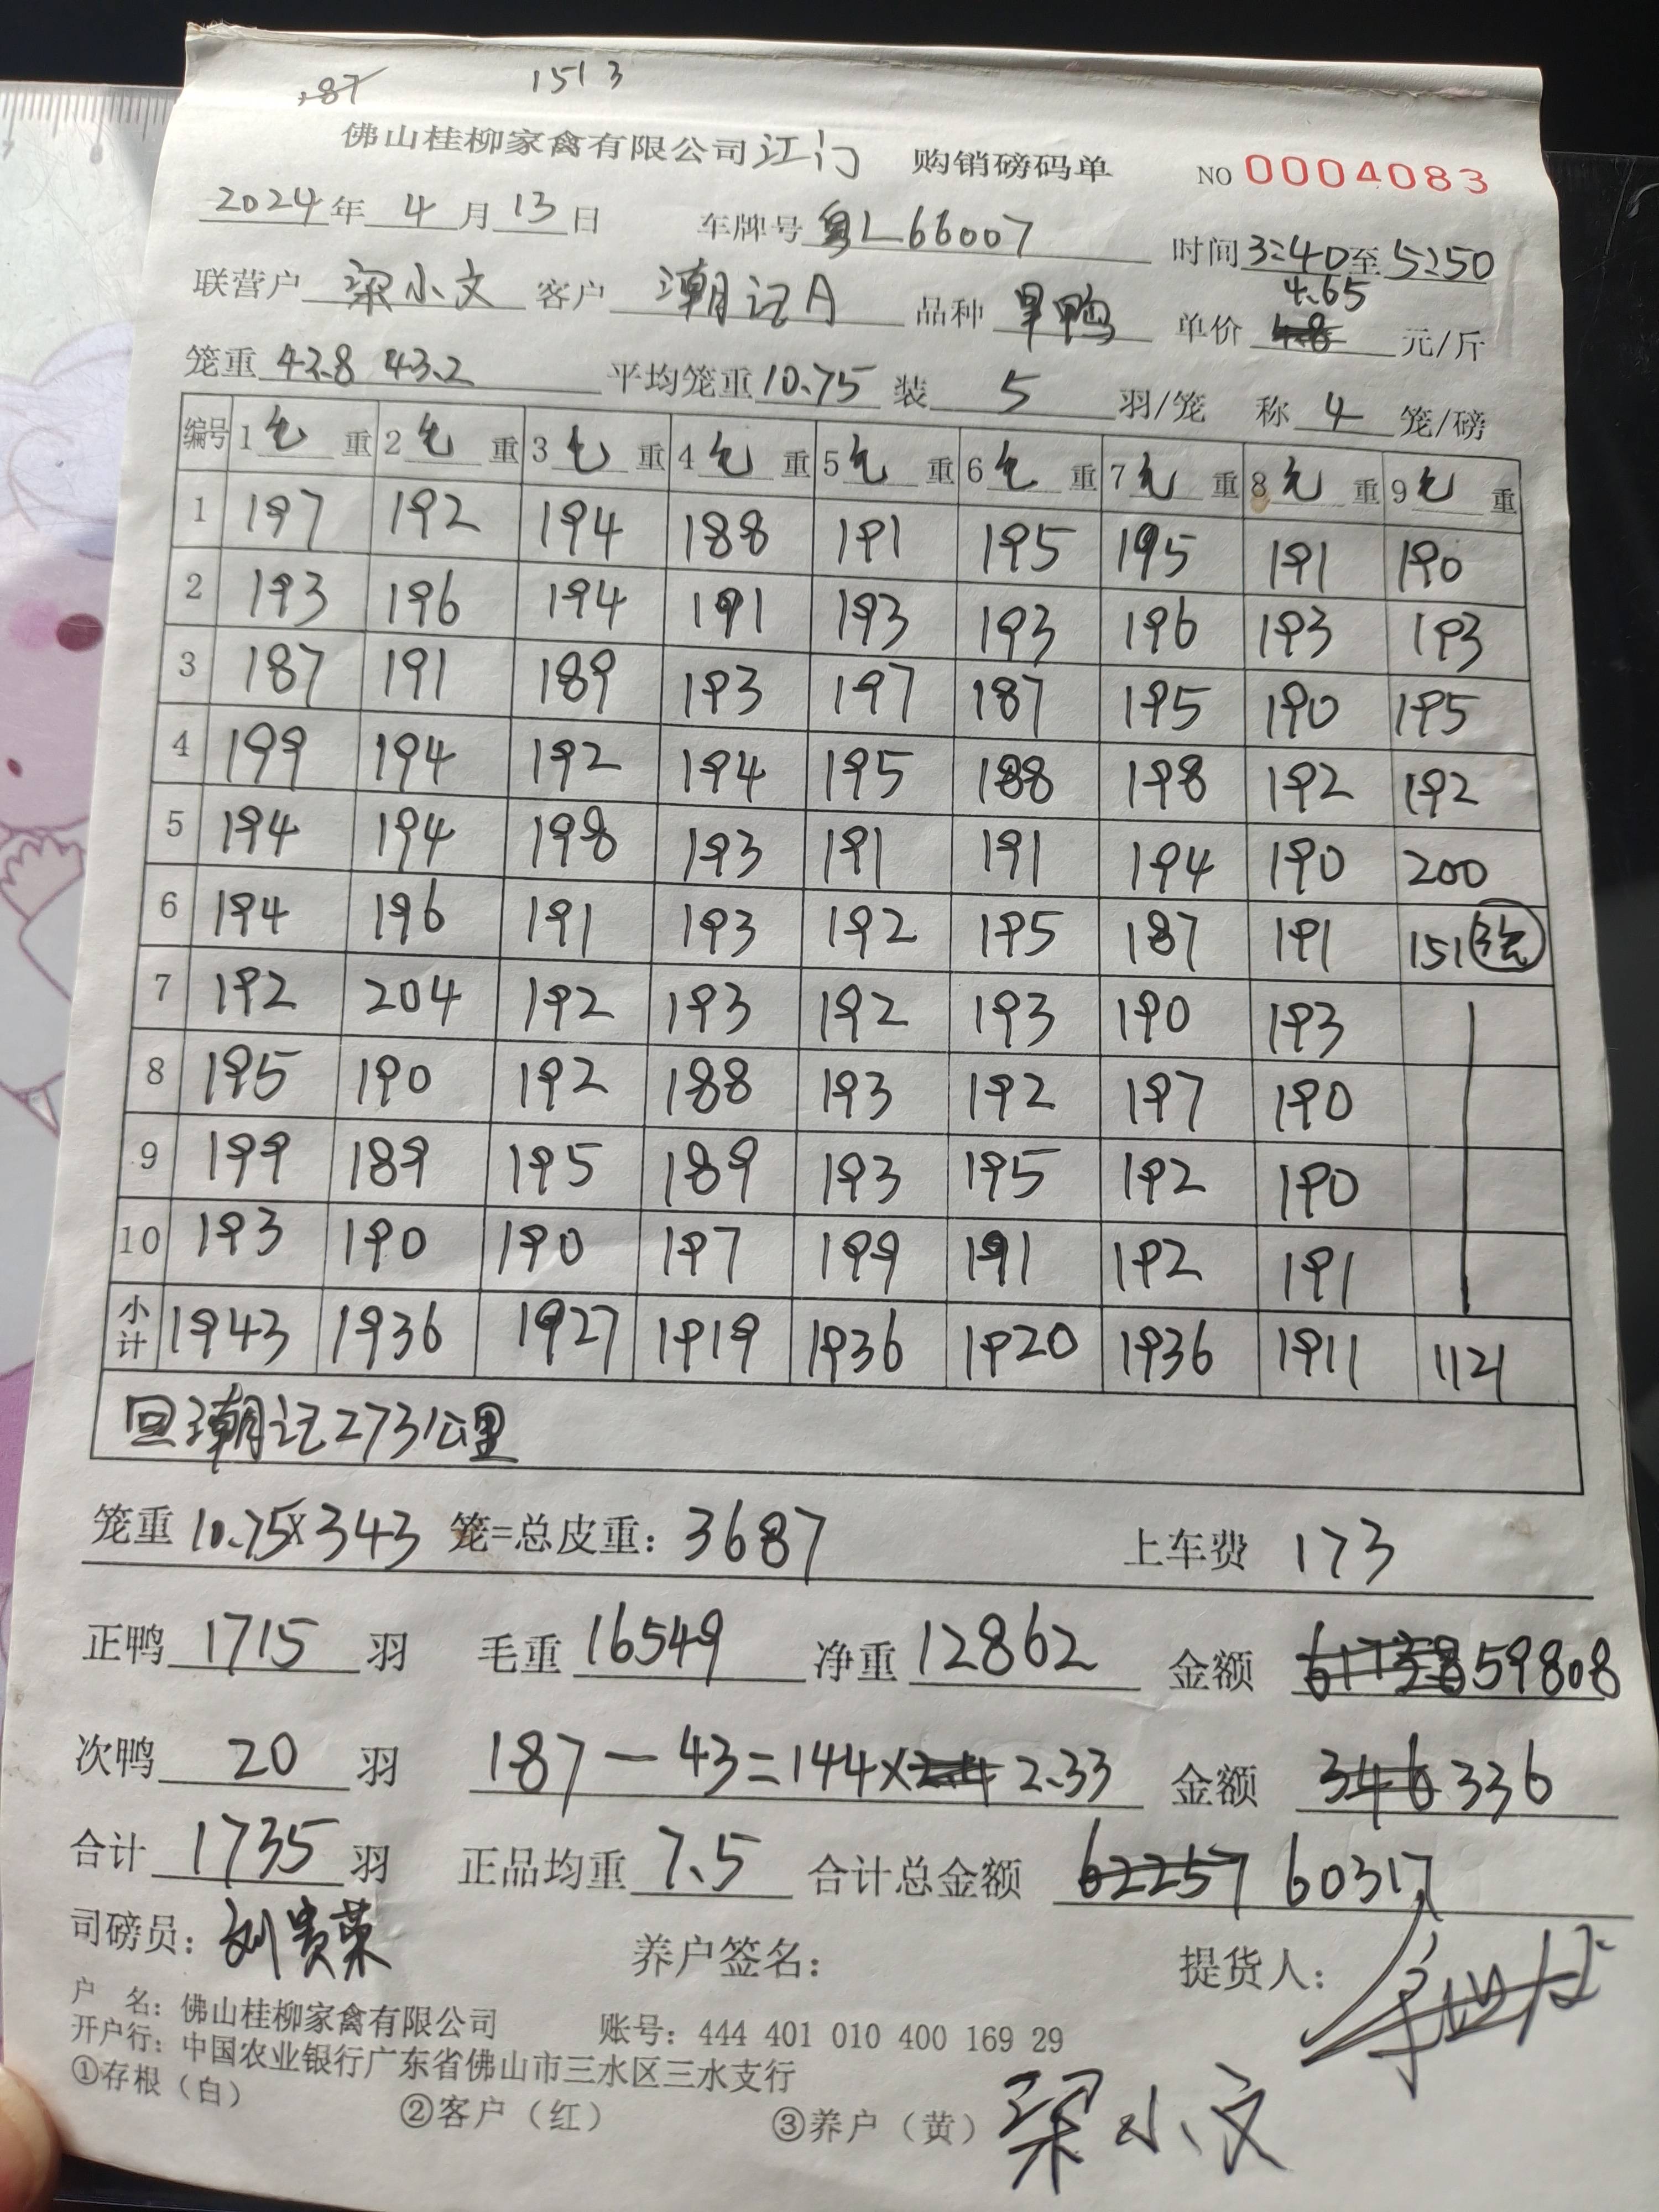 .87 1513
佛山桂柳家禽有限公司江门 购销磅码单 NO 0004083
2024年4月13日 车牌号粤L66007 时间3:40至5:50
联营户 梁小文 客户 潮记A 品种 旱鸭 单价 4.8 4.65 元/斤
笼重 42.8 43.2 平均笼重10.75 装 5 羽/笼 称 4 笼/磅
编号 1毛重 2毛重 3毛重 4毛重 5毛重 6毛重 7毛重 8毛重 9毛重
1 197 192 194 188 191 195 195 191 190
2 193 196 194 191 193 193 196 193 193
3 187 191 189 193 197 187 195 190 195
4 199 194 192 194 195 188 198 192 192
5 194 194 198 193 191 191 194 190 200
6 194 196 191 193 192 195 187 191 151 3笼
7 192 204 192 193 192 193 190 193
8 195 190 192 188 193 192 197 190
9 199 189 195 189 193 195 192 190
10 193 190 190 197 199 191 192 191
小计 1943 1936 1927 1919 1936 1920 1936 1911 1121
回潮记273公里
笼重 10.75×343 笼=总皮重: 3687 上车费 173
正鸭 1715 羽 毛重 16549 净重 12862 金额 61738 59808
次鸭 20 羽 187-43=144×2.4 2.33 金额 346 336
合计 1735 羽 正品均重 7.5 合计总金额 62257 60317
司磅员: 刘贵荣 养户签名: 提货人:
户 名: 佛山桂柳家禽有限公司 账号: 444 401 010 400 169 29
开户行: 中国农业银行广东省佛山市三水区三水支行
①存根(白) ②客户(红) ③养户(黄) 梁小文